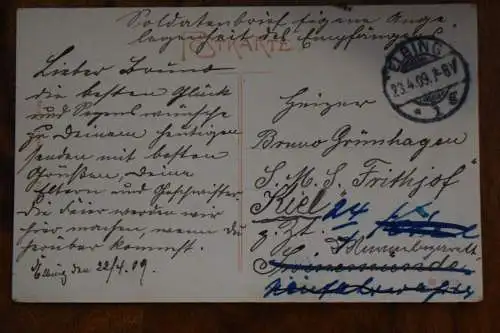 Soldatenbrief eigene Ange
legenheit des Empfängers
POSTKARTE
ELBING
23.4.09. 7-8V
* 1 g
Lieber Bruno
die besten Glück
und Segenswünsche
zu Deinem heutigen
senden mit besten
Grüßen, Deine
Eltern und Geschwister.
die Feier werden wir
hier machen, wenn du
herüber kommst.
Elbing den 22/4. 09.
Heizer
Bruno Grünhagen
S. M. S. „Frithjof"
Kiel 24
z. Zt.
Swinemünde
Neufahrwasser